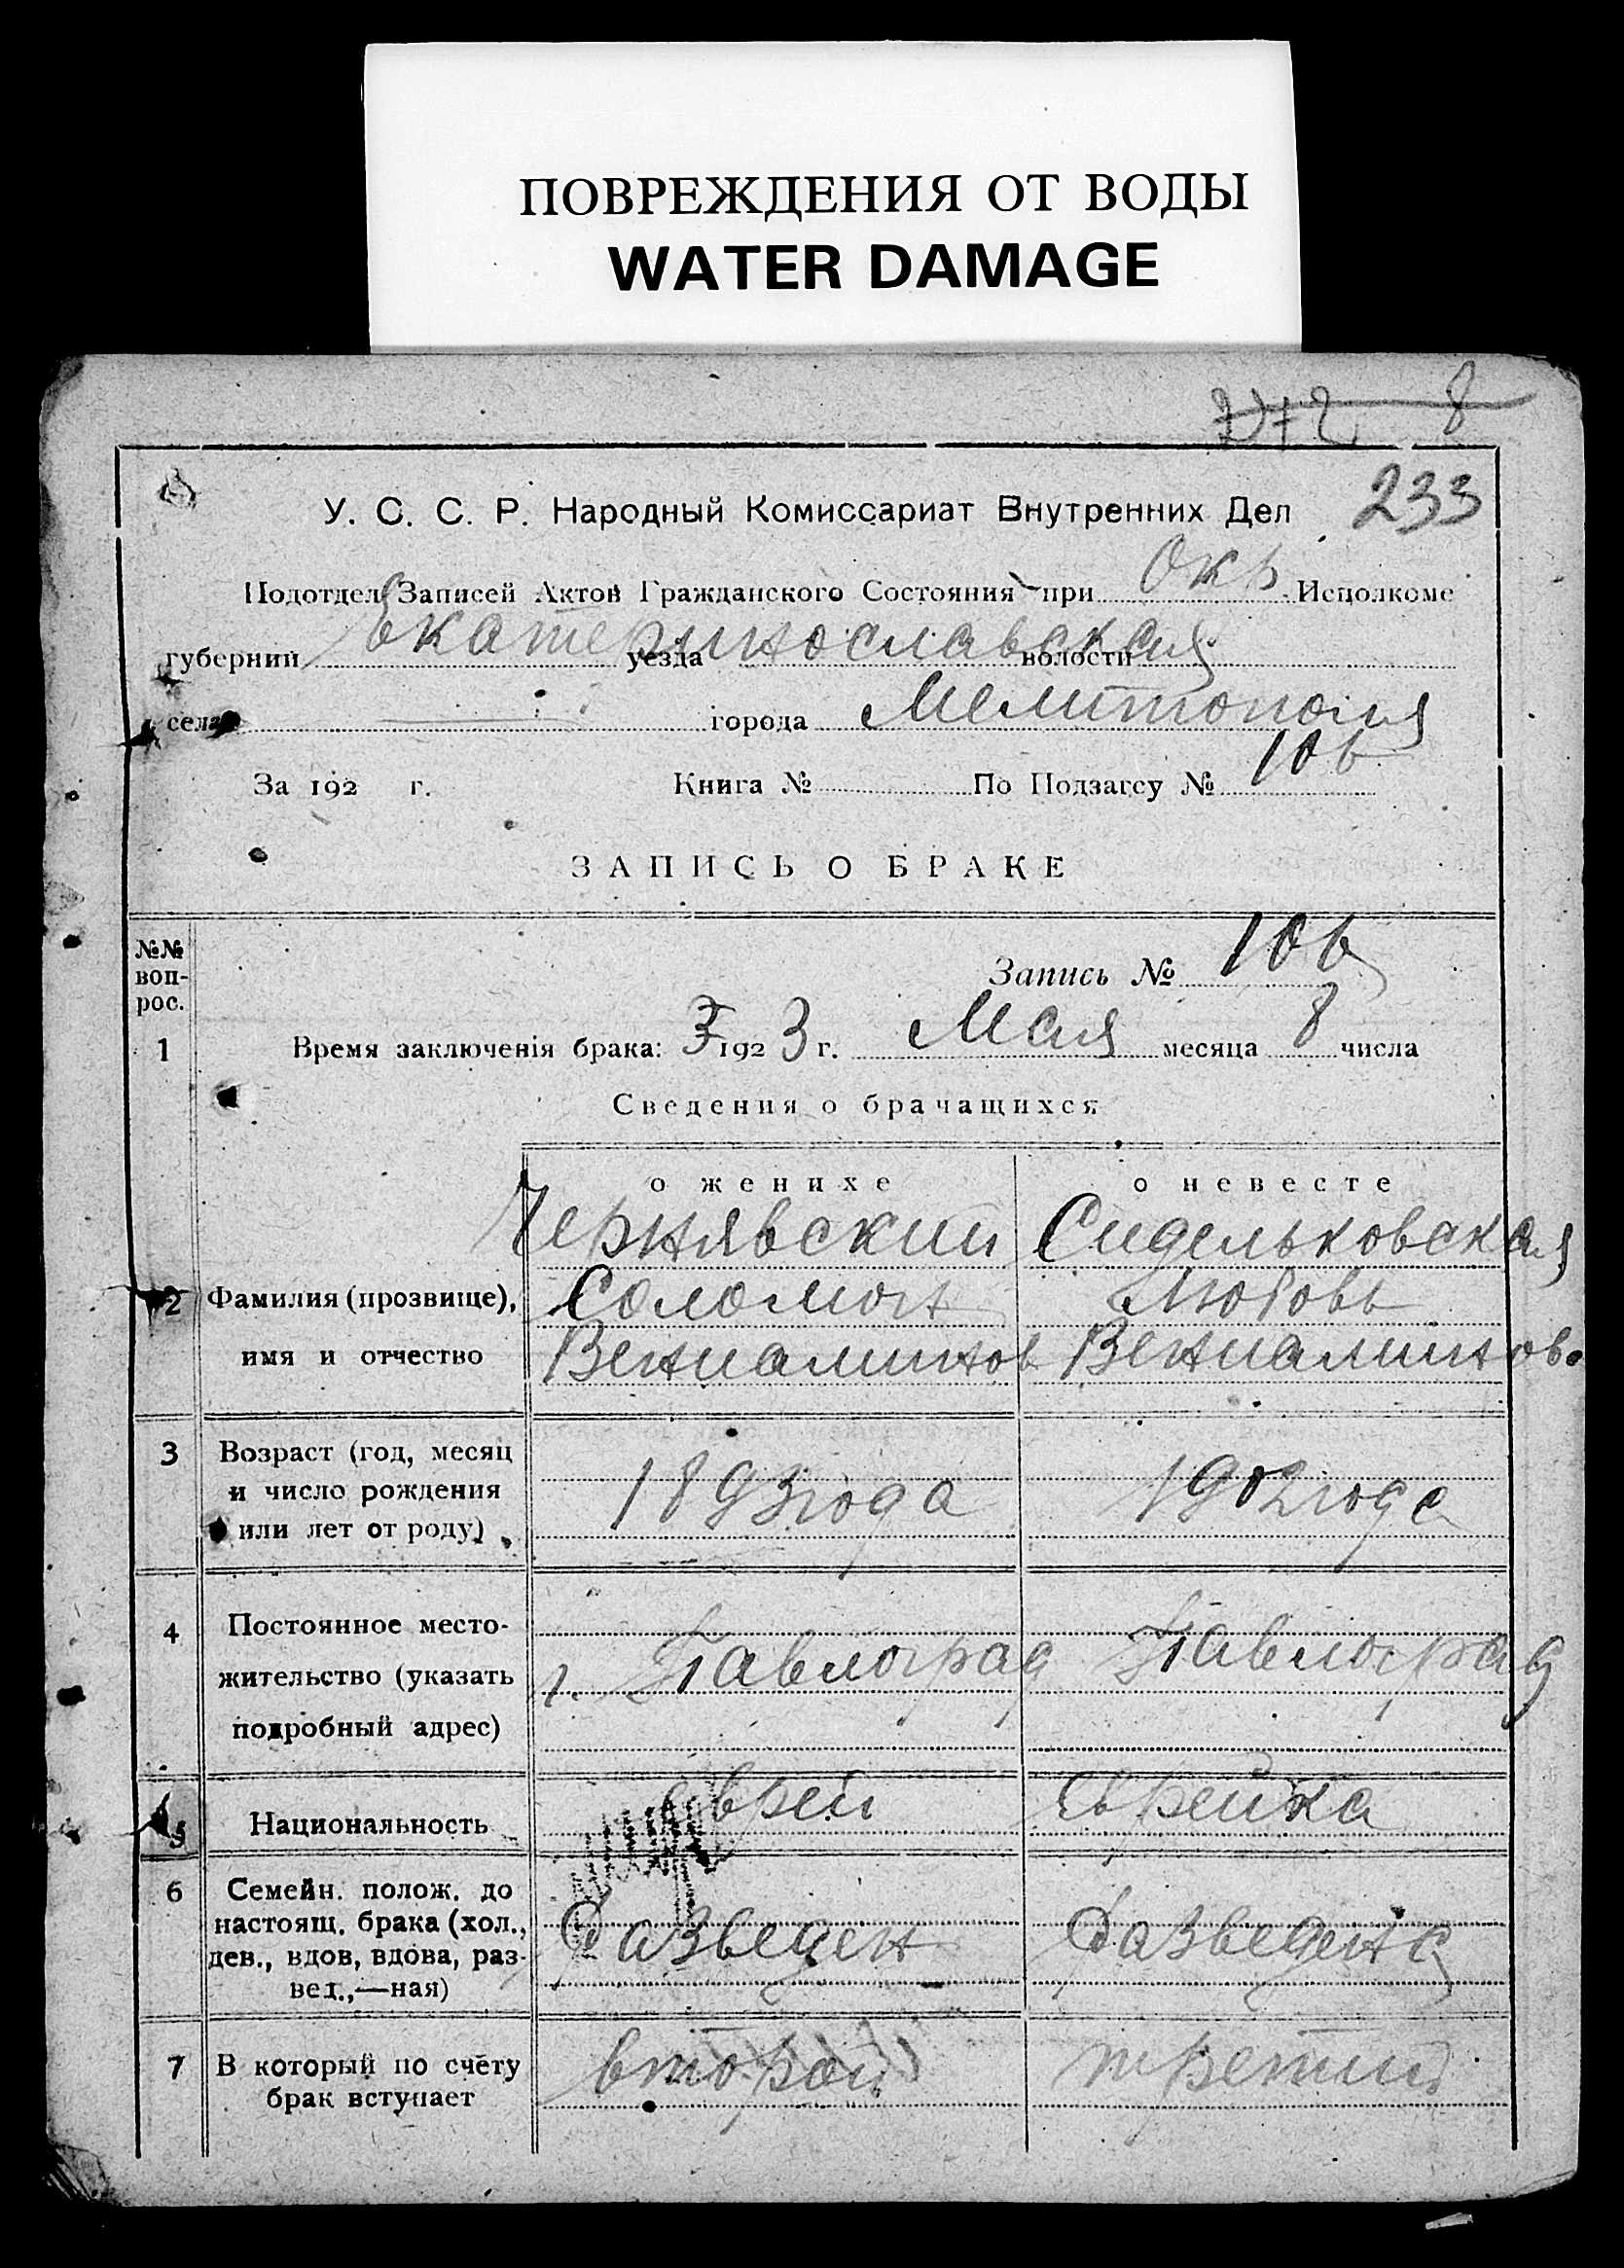 ПОВРЕЖДЕНИЯ ОТ ВОДЫ
WATER DAMAGE
8
233
У. С. С. Р. Народный Комиссариат Внутренних Дел
Подотдел Записей Актов Гражданского Состояния при Окр Исполкоме
губернии Екатеринославская уезда волости
села города Мелитополя
За 192 г. Книга № По Подзагсу № 106
ЗАПИСЬ О БРАКЕ
№№ воп-
рос.
Запись № 106
1 Время заключенія брака: 3 192 3 г. Мая месяца 8 числа
Сведения о брачащихся
о женихе о невесте
Чернявский Сидельковская
2 Фамилия (прозвище), Соломон Любовь
имя и отчество Вениаминов Вениаминов.
3 Возраст (год, месяц
и число рождения 1893 года 1902 года
или лет от роду)
4 Постоянное место-
жительство (указать г. Павлоград Павлоград
подробный адрес)
5 Национальность еврей Еврейка
6 Семейн. полож. до
настоящ. брака (хол.,
дев., вдов, вдова, раз- Разведен Разведена
вед.,—ная)
7 В который по счёту второй третий
брак вступает